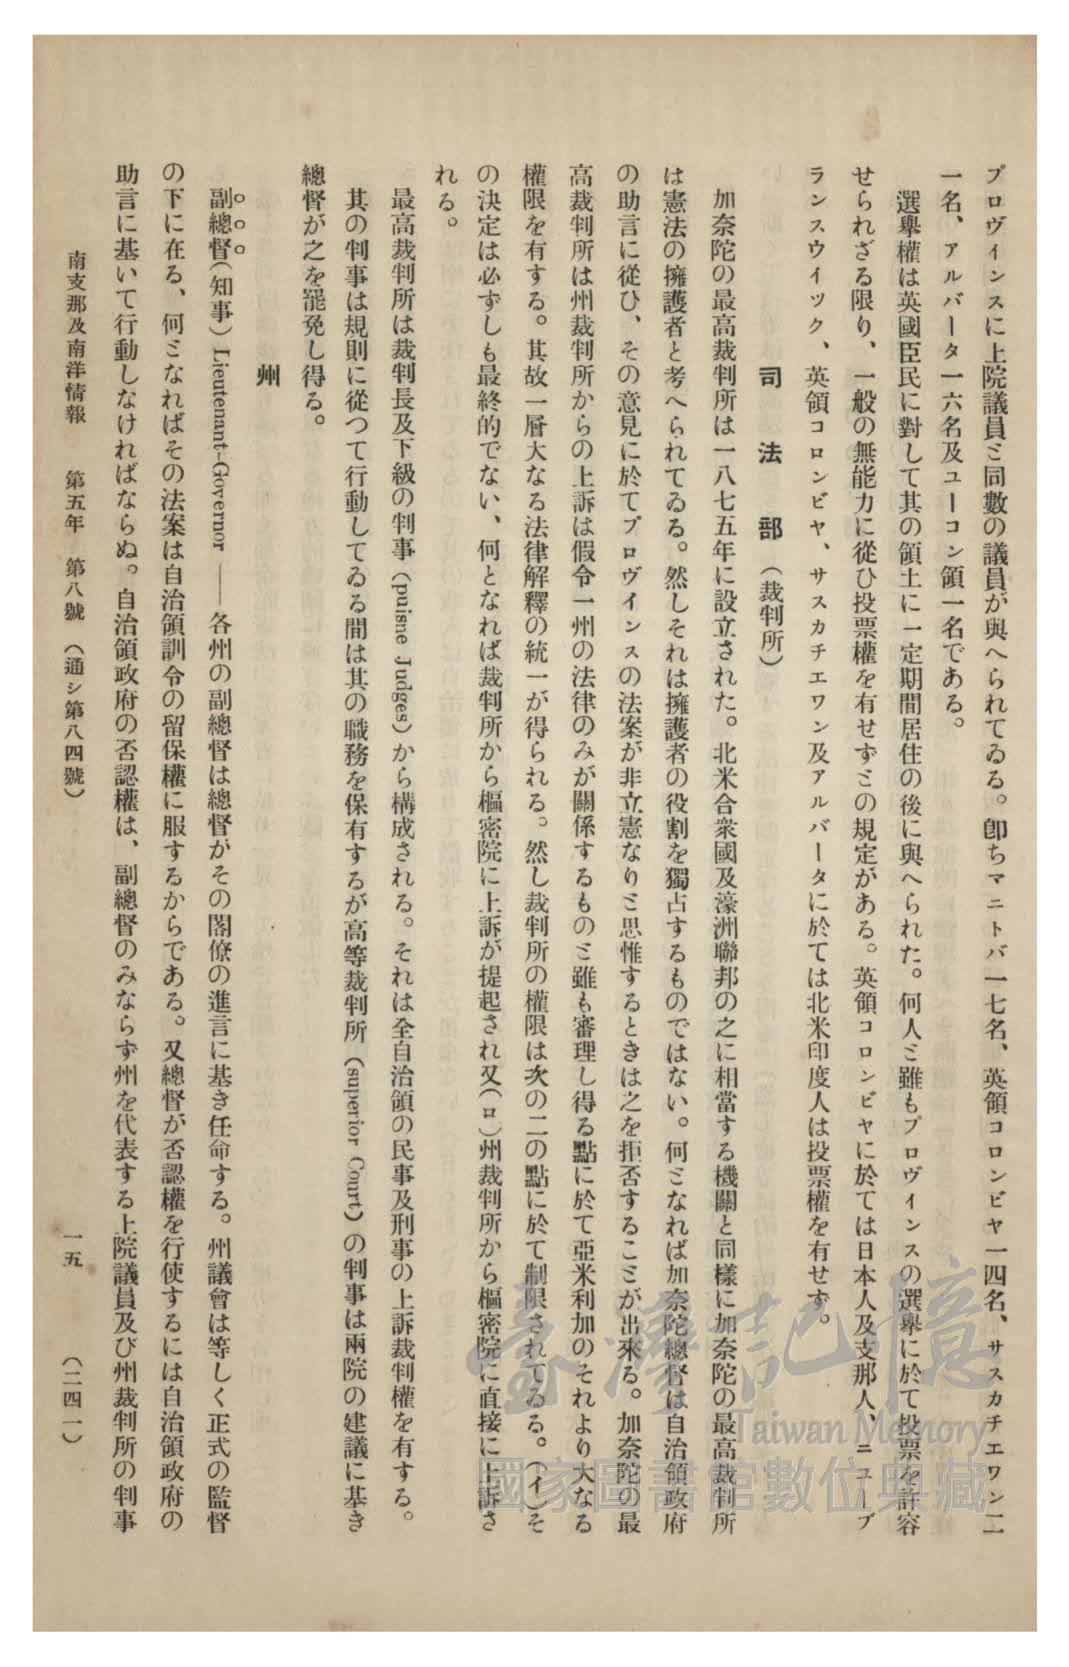 プロヴィンスに上院議員ミ同數の議員が與へられてゐる。卽ちマニトバ一七名、英領コロンビヤ一四名、サスカチエワン二
一名、アルバータ一六名及ユーコン領一名である。
選擧權は英國臣民に對して其の領土に一定期間居住の後に與へられた。何人ミ雖もプロヴィンスの選擧に於て投票を許容
せられざる限り、一般の無能力に從ひ投票權を有せずミの規定がある。英領コロンビヤに於ては日本人及支那人、ニューブ
ランスウイツク、英領コロンビヤ、サスカチエワン及アルバータに於ては北米印度人は投票權を有せず。
司法部（裁判所）
加奈陀の最高裁判所は一八七五年に設立された。北米合衆國及濠洲聯邦の之に相當する機關と同樣に加奈陀の最高裁判所
は憲法の擁護者と考へられてゐる。然しそれは擁護者の役割を獨占するものではない。何ミなれば加奈陀總督は自治領政府
の助言に從ひ、その意見に於てプロヴインスの法案が非立憲なりミ思惟するときは之を拒否するこミが出來る。加奈陀の最
高裁判所は州裁判所からの上訴は假令一州の法律のみが關係するものミ雖も審理し得る點に於て亞米利加のそれより大なる
權限を有する。其故一層大なる法律解釋の統一が得られる。然し裁判所の權限は次の二の點に於て制限されてゐる。（イ）そ
の決定は必ずしも最終的でない、何となれば裁判所から樞密院に上訴が提起され又（ロ）州裁判所から樞密院に直接に上訴さ
れる。
最高裁判所は裁判長及下級の判事（puisne Judges）から構成される。それは全自治領の民事及刑事の上訴裁判權を有する。
其の判事は規則に從つて行動してゐる間は其の職務を保有するが高等裁判所（superior Court）の判事は兩院の建議に基き
總督が之を罷免し得る。
州
副總督（知事）Lieutenant-Governor ―― 各州の副總督は總督がその閣僚の進言に基き任命する。州議會は等しく正式の監督
の下に在る、何ミなればその法案は自治領訓令の留保權に服するからである。又總督が否認權を行使するには自治領政府の
助言に基いて行動しなければならぬ。自治領政府の否認權は、副總督のみならず州を代表する上院議員及び州裁判所の判事
南支那及南洋情報　第五年　第八號　（通シ第八四號）　一五　（二四一）
臺灣記憶
Taiwan Memory
國家圖書館數位典藏